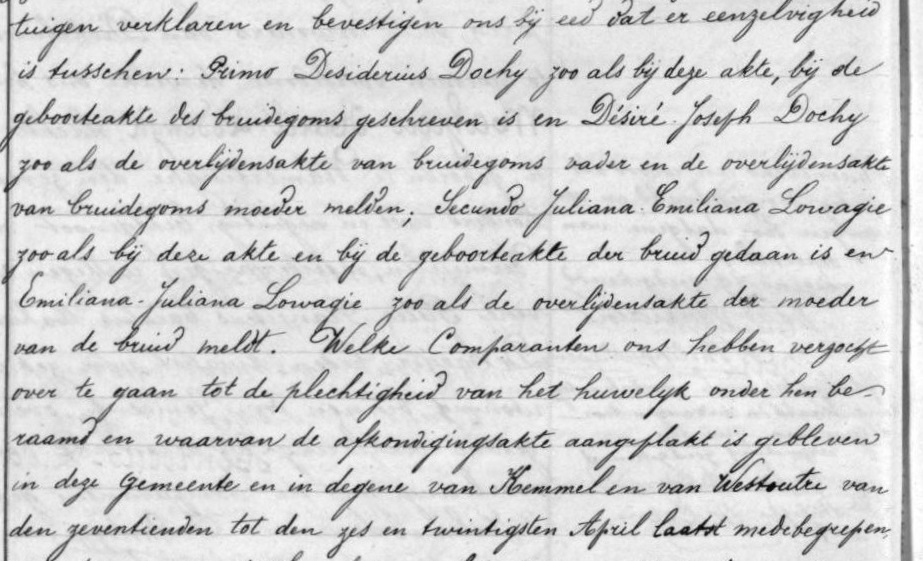 tuigen verklaren en bevestigen ons bij eed dat er eenzelvigheid
is tusschen: Primo Desiderius Dochy zoo als bij deze akte, bij de
geboorteakte des bruidegoms geschreven is en Désiré-Joseph Dochy
zoo als de overlijdensakte van bruidegoms vader en de overlijdensakte
van bruidegoms moeder melden; Secundo Juliana-Emiliana Lowagie
zoo als bij deze akte en bij de geboorteakte der bruid gedaan is en
Emiliana-Juliana Lowagie zoo als de overlijdensakte der moeder
van de bruid meldt. Welke Comparanten ons hebben verzocht
over te gaan tot de plechtigheid van het huwelyk onder hen be-
raamd en waarvan de afkondigingsakte aangeplakt is gebleven
in deze Gemeente en in degene van Kemmel en van Westoutre van
den zeventienden tot den zes en twintigsten April laatst medebegrepen,